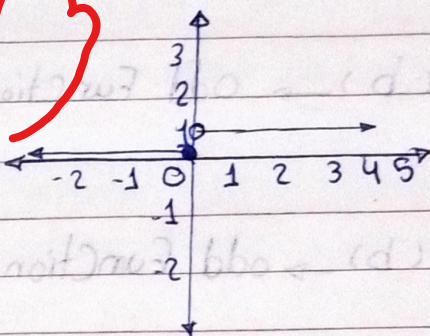 3
2
1
-2 -1 0 1 2 3 4 5
-1
-2